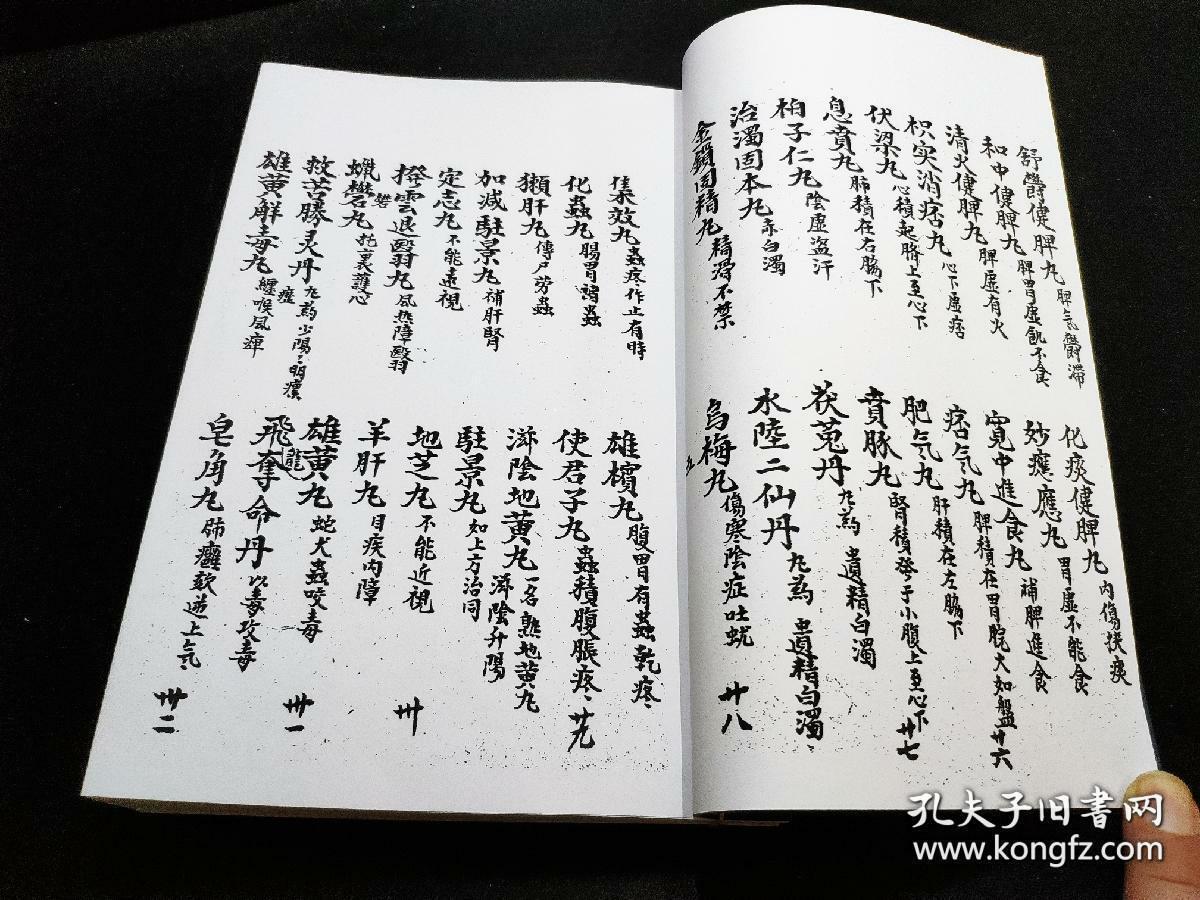 舒鬱健脾丸 脾气鬱滯
化痰健脾丸 內傷挾痰
和中健脾丸 脾胃虛飢不食
妙應丸 胃虛不能食
清火健脾丸 脾虛有火
寬中進食丸 補脾進食
枳实消痞丸 心下虛痞
痞气丸 脾積在胃脘大如盤 廿六
伏梁丸 心積起臍上至心下
肥气丸 肝積在左脇下
息賁丸 肺積在右脇下
賁豚丸 腎積發于小腹上至心下 廿七
柏子仁丸 陰虛盜汗
茯菟丹 丸药 遺精白濁
治濁固本丸 赤白濁
水陸二仙丹 丸药 遺精白濁
金鎖固精丸 精滑不禁
烏梅丸 傷寒陰症吐蚘 廿八
集效丸 蟲疼作止有時
雄檳丸 腹胃有蟲乾疼
化蟲丸 腸胃諸蟲
使君子丸 蟲積腹脹疼 廿九
獺肝丸 傳尸劳蟲
滋陰地黄丸 一名熟地黄丸 滋陰升陽
加减駐景丸 補肝腎
駐景丸 如上方治同
定志丸 不能遠視
地芝丸 不能近視 卅
撥雲退翳丸 風热障翳
羊肝丸 目疾內障
蠟礬丸 托裏護心
雄黄丸 蛇犬蟲咬毒 卅一
救苦勝灵丹 丸药 少陽陽明瘰
飛龍奪命丹 以毒攻毒
雄黄解毒丸 纏喉風痺
皂角丸 肺癰欬逆上气 卅二
孔夫子旧书网
www.kongfz.com